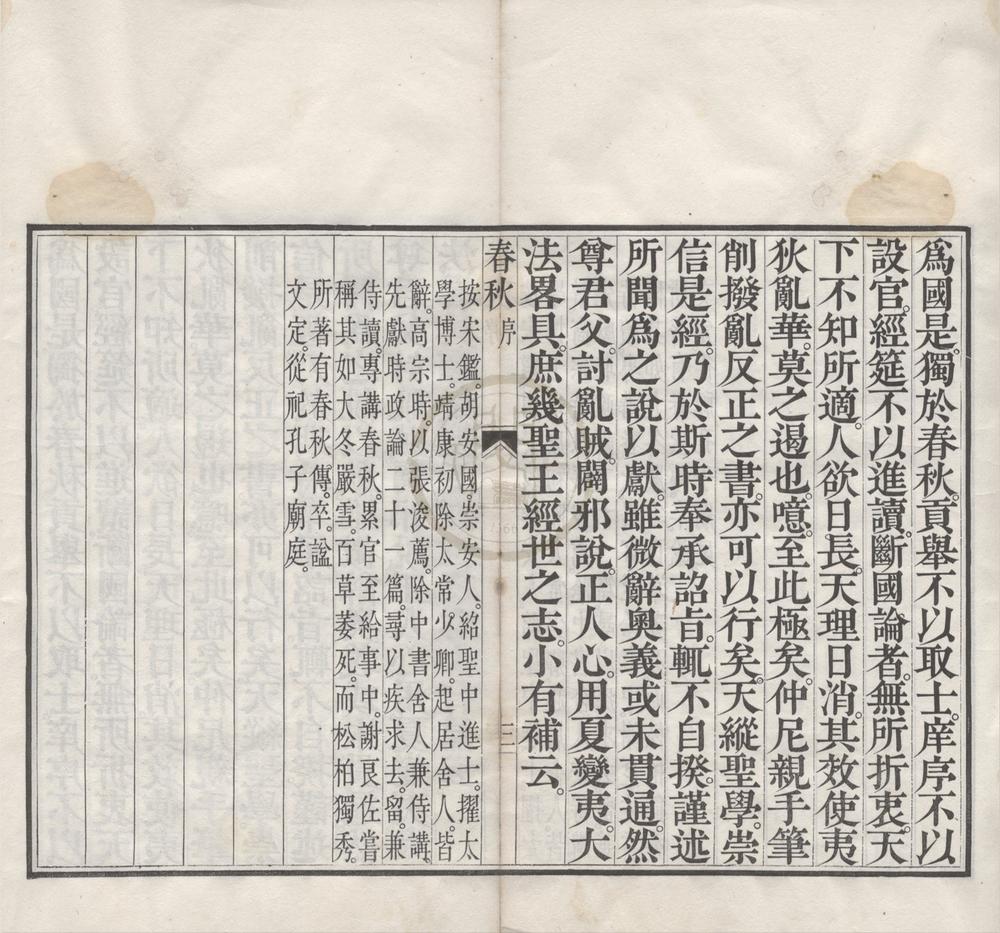 爲國是。獨於春秋。貢舉不以取士。庠序不以
設官。經筵不以進讀。斷國論者。無所折衷。天
下不知所適。人欲日長。天理日消。其效使夷
狄亂華。莫之遏也。噫。至此極矣。仲尼親手筆
削撥亂反正之書。亦可以行矣。天縱聖學。崇
信是經。乃於斯時奉承詔旨。輒不自揆。謹述
所聞爲之說以獻。雖微辭奧義或未貫通。然
尊君父。討亂賊。闢邪說。正人心。用夏變夷。大
法畧具。庶幾聖王經世之志。小有補云。
春秋 序 三
按宋鑑。胡安國。崇安人。紹聖中進士。擢太
學博士。靖康初除太常少卿。起居舍人。皆
辭。高宗時。以張浚薦。除中書舍人兼侍講。
先獻時政論二十一篇。尋以疾求去。留。兼
侍讀。專講春秋。累官至給事中。謝良佐嘗
稱其如大冬嚴雪。百草萎死。而松柏獨秀。
所著有春秋傳。卒。諡
文定。從祀孔子廟庭。